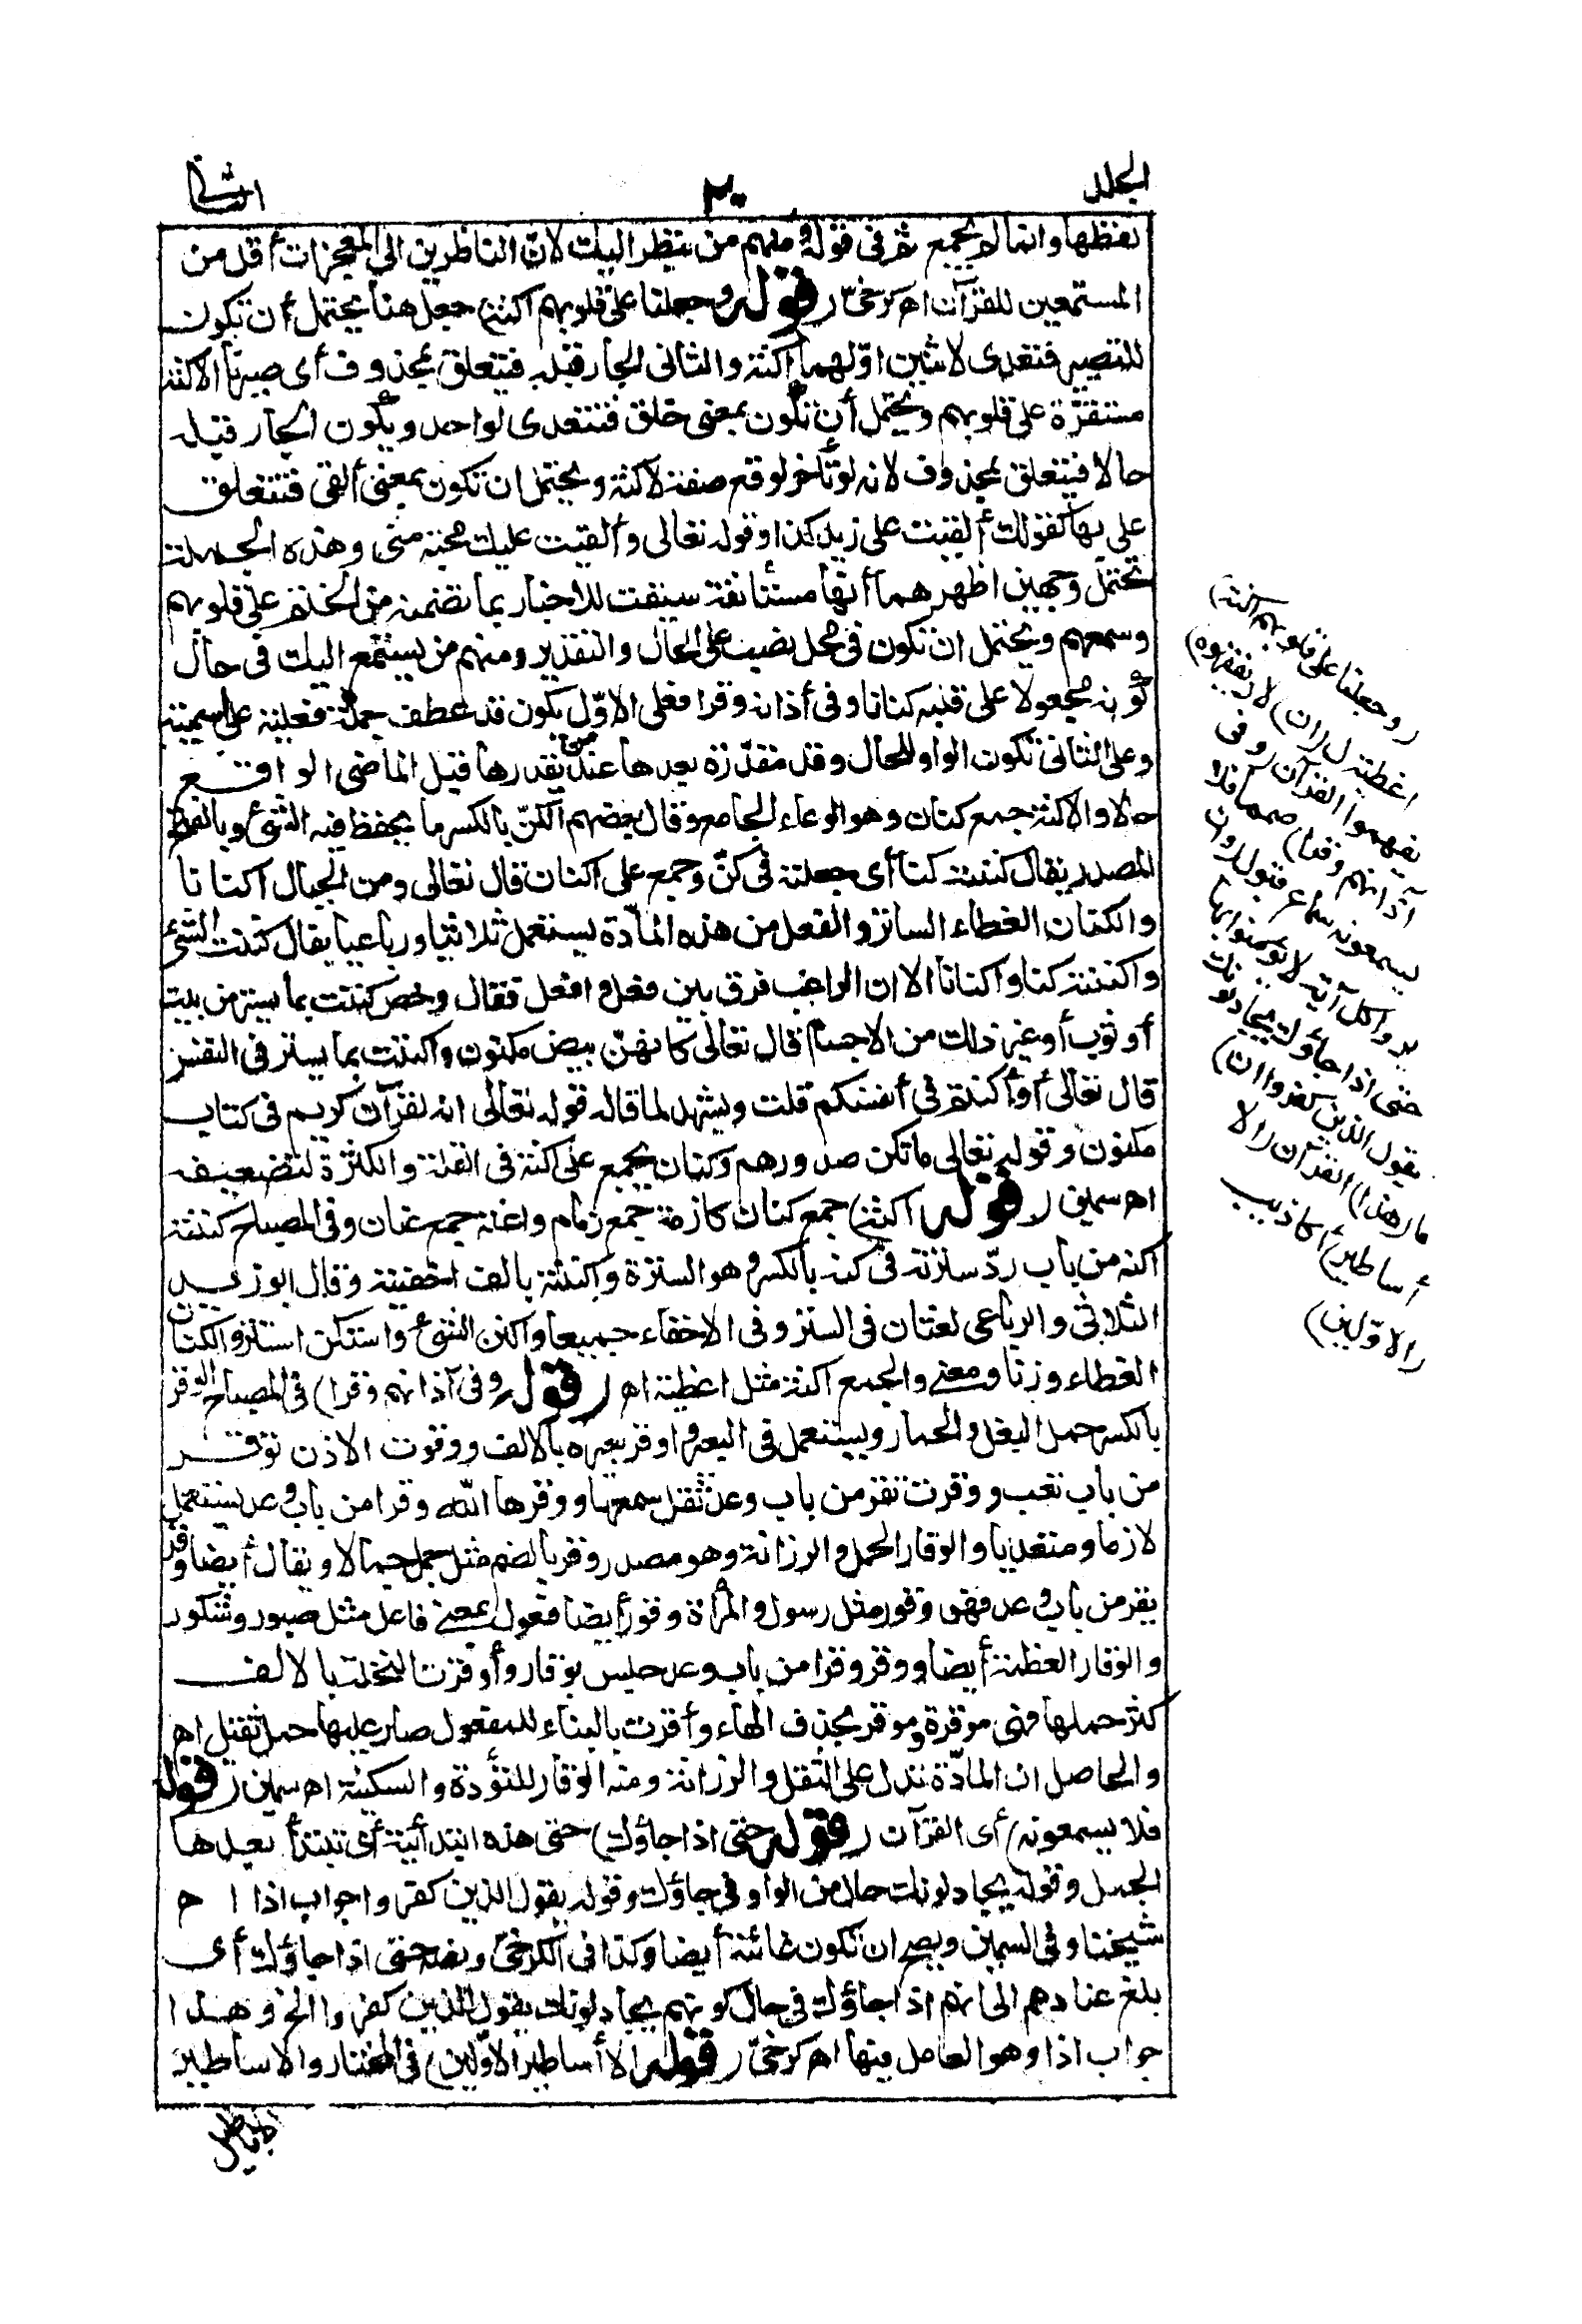 الجلد
٢٠
الثانى
لفظها وانما لم يجمع ثم فى قوله ومنهم من ينظر اليك لان الناظرين الى المعجزات أقل من
المستمعين للقرآن اه كرخىّ (قوله وجعلنا على قلوبهم اكنة) جعل هنا يحتمل أن تكون
للتصيير فتتعدى لاثنين اوّلهما اكنة والثانى الجار قبله فيتعلق بمحذوف أى صيرنا الاكنة
مستقرّة على قلوبهم ويحتمل أن تكون بمعنى خلق فتتعدى لواحد ويكون الجار قبله
حالا فيتعلق بمحذوف لانه لو تأخر لوقع صفة لاكنة ويحتمل ان تكون بمعنى ألقى فتتعلق
على بها كقولك ألقيت على زيد كذا وقوله تعالى وألقيت عليك محبة منى وهذه الجملة
تحتمل وجهين اظهرهما أنها مستأنفة سيقت للاخبار بما تضمنه من الختم على قلوبهم
وسمعهم ويحتمل ان تكون فى محل نصب على الحال والتقدير ومنهم من يستمع اليك فى حال
كونه مجعولا على قلبه كنانا وفى أذانه وقرا فعلى الاوّل يكون قد عطف جملة فعلية على اسمية
وعلى الثانى تكون الواو للحال وقد مقدّرة بعدها عند من يقدرها قبل الماضى الواقع
حالا والاكنة جمع كنان وهو الوعاء الجامع وقال بعضهم الكنّ بالكسر ما يحفظ فيه الشئ وبالفتح
المصدر يقال كننته كنا أى جعلته فى كنّ وجمع على اكنان قال تعالى ومن الجبال اكنانا
والكنان الغطاء الساتر والفعل من هذه المادّة يستعمل ثلاثيا ورباعيا يقال كننت الشئ
واكننته كنا واكنانا الا ان الراغب فرق بين فعل وافعل فقال وخص كننت بما يستر من بيت
أو ثوب أو غير ذلك من الاجسام قال تعالى كانهنّ بيض مكنون واكننت بما يستر فى النفس
قال تعالى أو أكننتم فى أنفسكم قلت ويشهد لما قاله قوله تعالى انه لقرآن كريم فى كتاب
مكنون وقوله تعالى ما تكن صدورهم وكنان يجمع على اكنة فى القلة والكثرة لتضعيفه
اه سمين (قوله اكنة) جمع كنان كازمة جمع زمام واعنة جمع عنان وفى المصباح كننته
اكنه من باب ردّ سترته فى كنه بالكسر وهو السترة واكننته بالف اخفيته وقال ابو زيد
الثلاثى والرباعى لغتان فى الستر وفى الاخفاء جميعا واكتن الشئ واستكن استتر والكنان
الغطاء وزنا ومعنى والجمع اكنة مثل اغطية اه (قوله وفى آذانهم وقرا) فى المصباح الوقر
بالكسر حمل البغل والحمار ويستعمل فى البعير واوقر بعيره بالالف ووقرت الاذن توقر
من باب تعب ووقرت تقر من باب وعد ثقل سمعها ووقرها الله وقرا من باب وعد يستعمل
لازما ومتعديا والوقار الحلم والرزانة وهو مصدر وقر بالضم مثل جمل جمالا ويقال أيضا وقر
يقر من باب وعد فهو وقور مثل رسول والمرأة وقور أيضا فعول بمعنى فاعل مثل صبور وشكور
والوقار العظمة أيضا ووقر وقرا من باب وعد جلس بوقار وأوقرت النخلة بالالف
كثر حملها فهى موقرة وموقر بحذف الهاء وأقرت بالبناء للمفعول صار عليها حمل ثقيل اه
والحاصل ان المادّة تدل على الثقل والرزانة ومنه الوقار للتؤدة والسكينة اه سمين (قوله
فلا يسمعونه) أى القرآن (قوله حتى اذا جاؤك) حتى هذه ابتدائية أى تبتدأ بعدها
الجمل وقوله يجادلونك حال من الواو فى جاؤك وقوله يقول الذين كفروا جواب اذا اه
شيخنا وفى السمين ويصح ان تكون غائية أيضا وكذا فى الكرخىّ ونصه حتى اذا جاؤك أى
بلغ عنادهم الى انهم اذا جاؤك فى حال كونهم يجادلونك يقول الذين كفروا الخ وهذا
جواب اذا وهو العامل فيها اه كرخىّ (قوله الا أساطير الاوّلين) فى المختار والاساطير
الاباطيل
(وجعلنا على قلوبهم اكنة)
اغطية ل(ان) لا (يفقهوه)
يفهموا القرآن (وفى
آذانهم وقرا) صمما فلا
يسمعونه سماع قبول (وان
يروا كل آية لا يؤمنوا بها
حتى اذا جاؤك يجادلونك
يقول الذين كفروا ان)
ما (هذا) القرآن (الا
أساطير) أكاذيب
(الاوّلين)